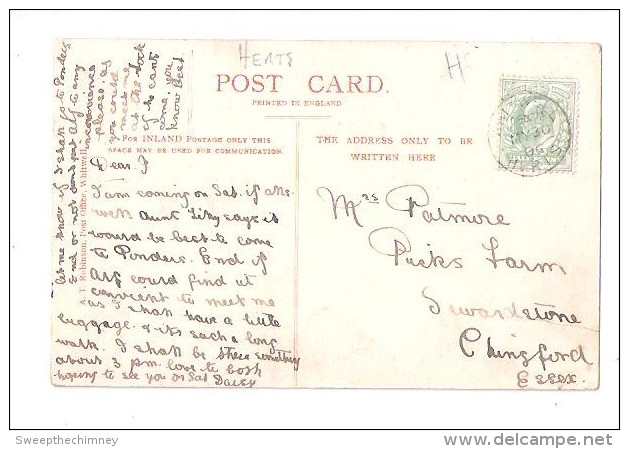 HERTS
H
POST CARD.
PRINTED IN ENGLAND
FOR INLAND POSTAGE ONLY THIS
SPACE MAY BE USED FOR COMMUNICATION.
THE ADDRESS ONLY TO BE
WRITTEN HERE
A. T. Robinson, Post Office, Whitwell.
Dear J
I am coming on Sat. if all's
well Aunt says it
would be best to come
to Ponders. End if
Alf could find it
convient to meet me
as I shall have a little
luggage. & its such a long
walk. I shall be there something
about 3 p.m. love to both
hoping to see you on Sat Daisy
let me know if I shall go to Ponders
End or not dont put Alf to any
inconvenience
please. as
you could
meet me
at the lock
if he cant
come. you
know best
Mrs Patmore
Pucks Farm
Sewardstone
Chingford
Essex.
Sweepthechimney
www.delcampe.net